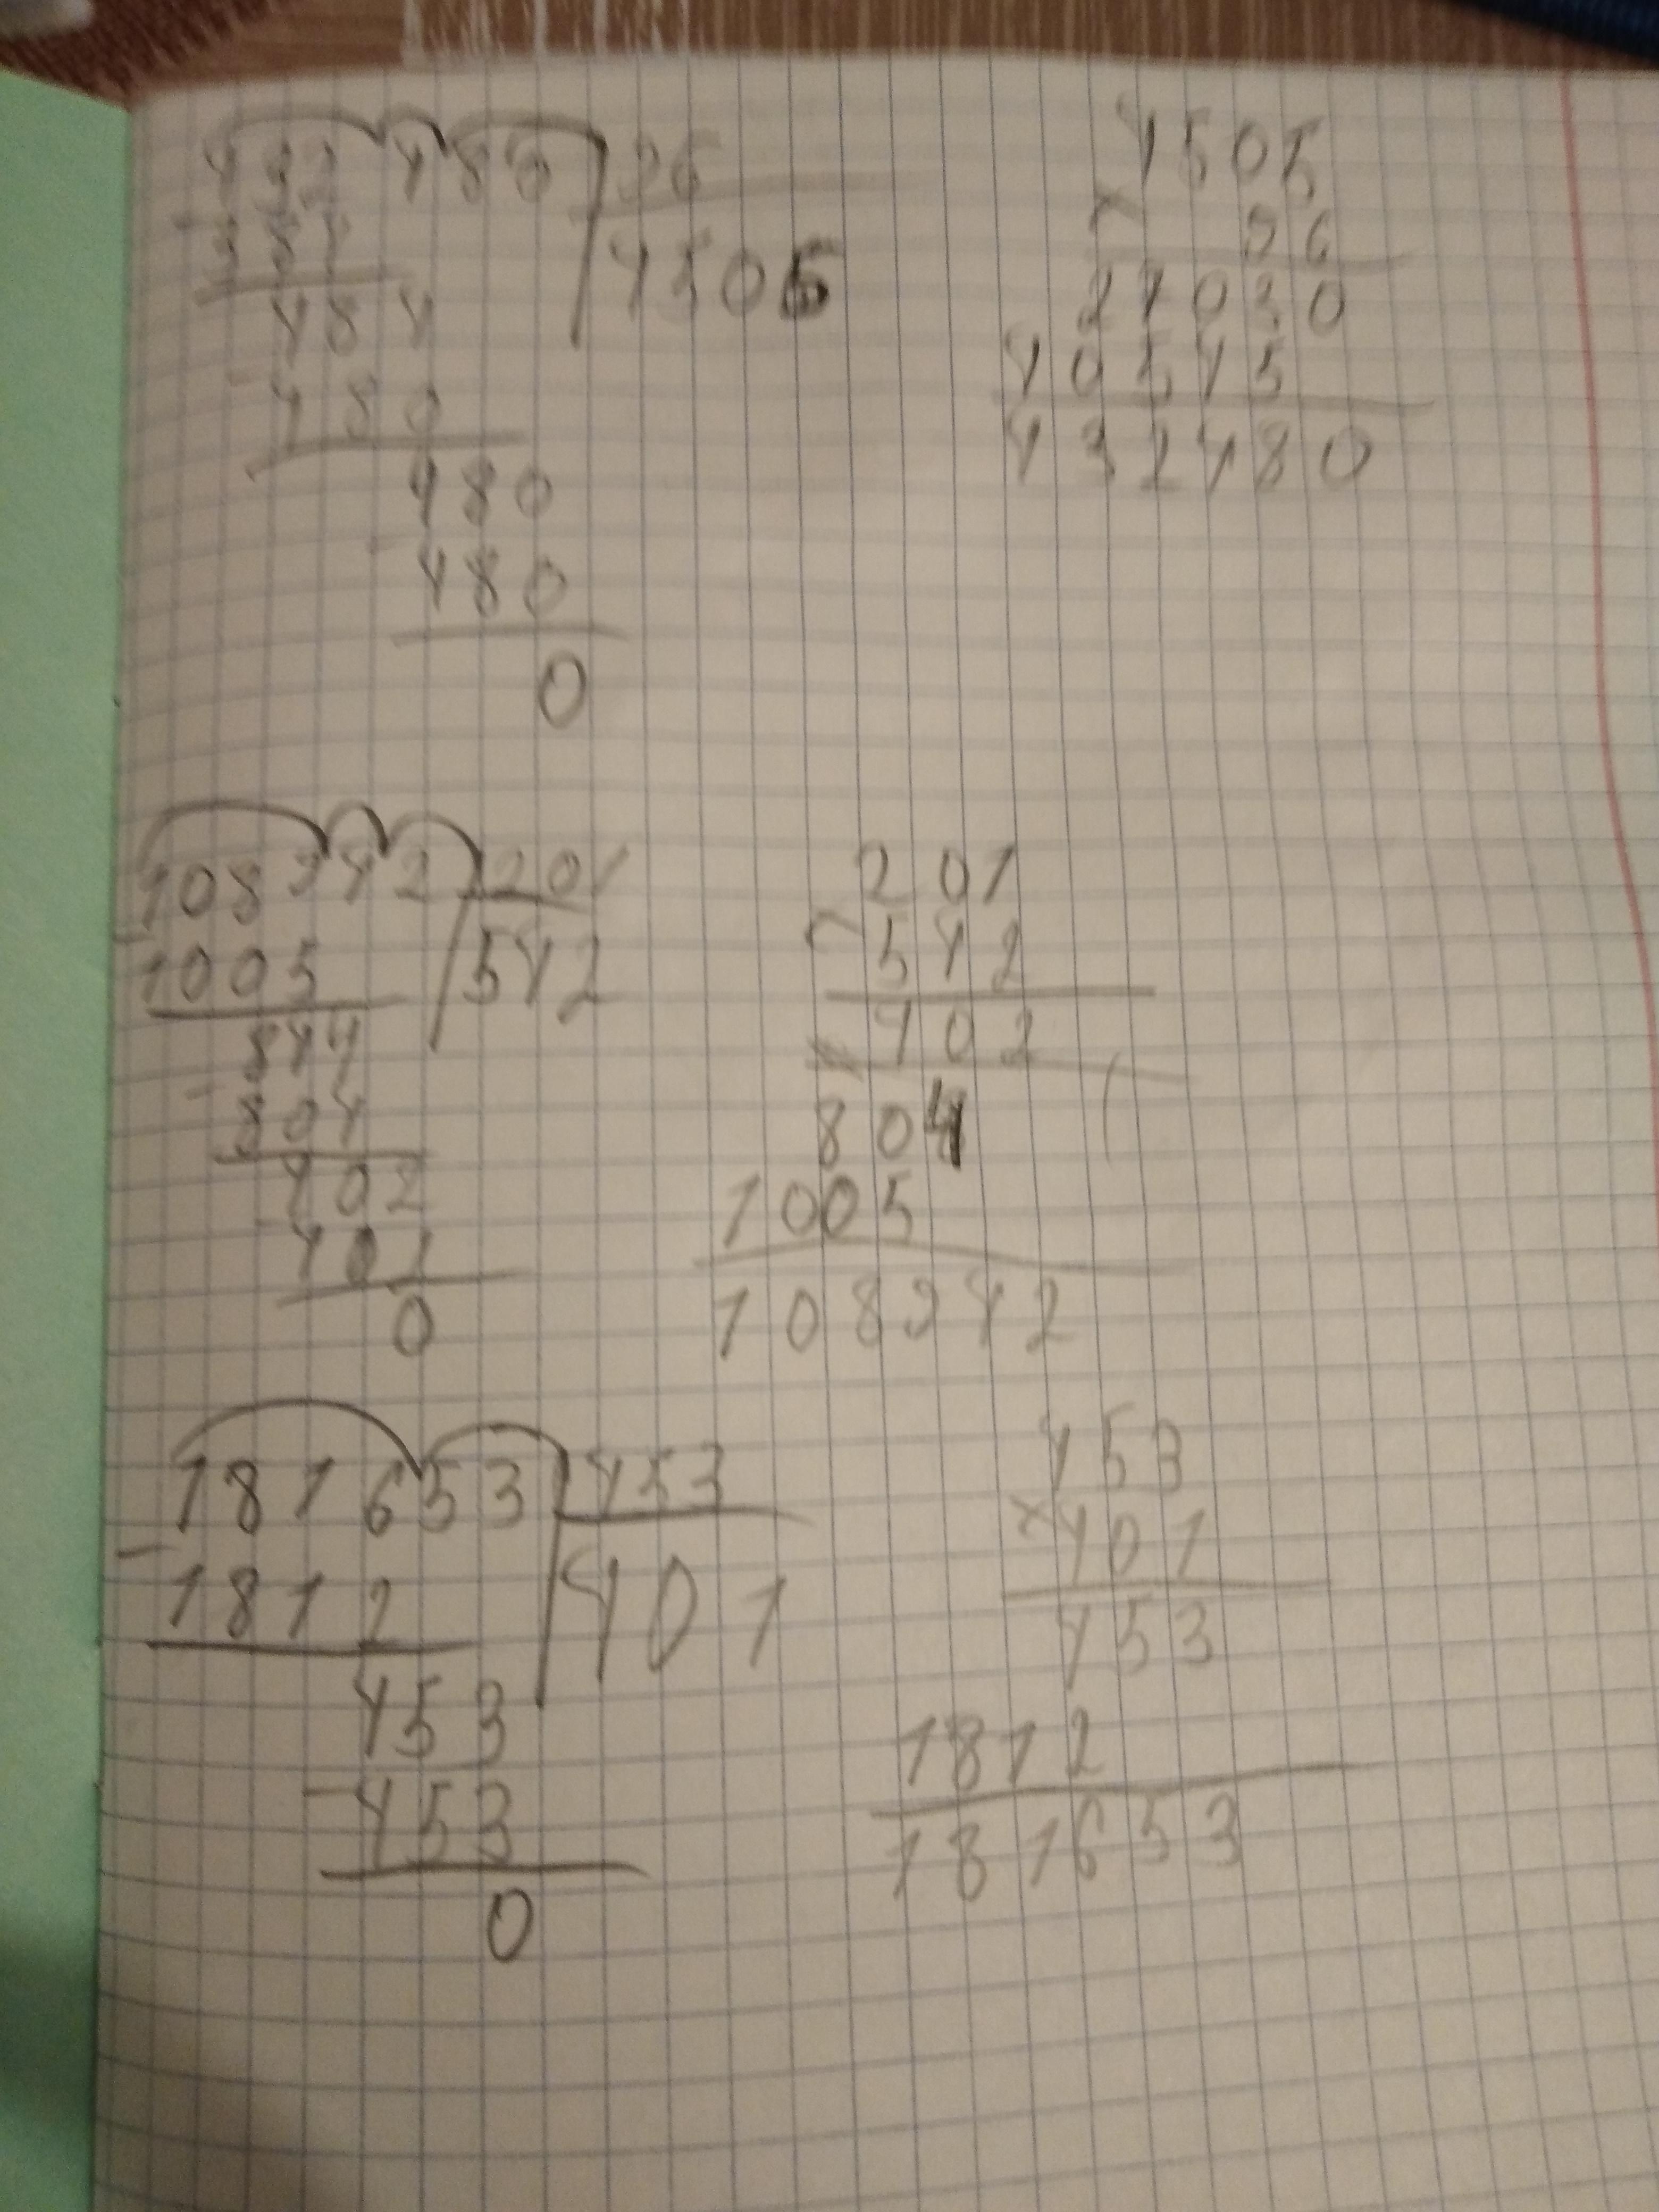 432480 96
384 4505
484
480
480
480
0
4505
× 96
27030
40545
432480
108942 201
1005 542
844
804
402
402
0
201
542
402
804
1005
108942
181653 453
1812 401
453
453
0
453
× 401
453
1812
181653